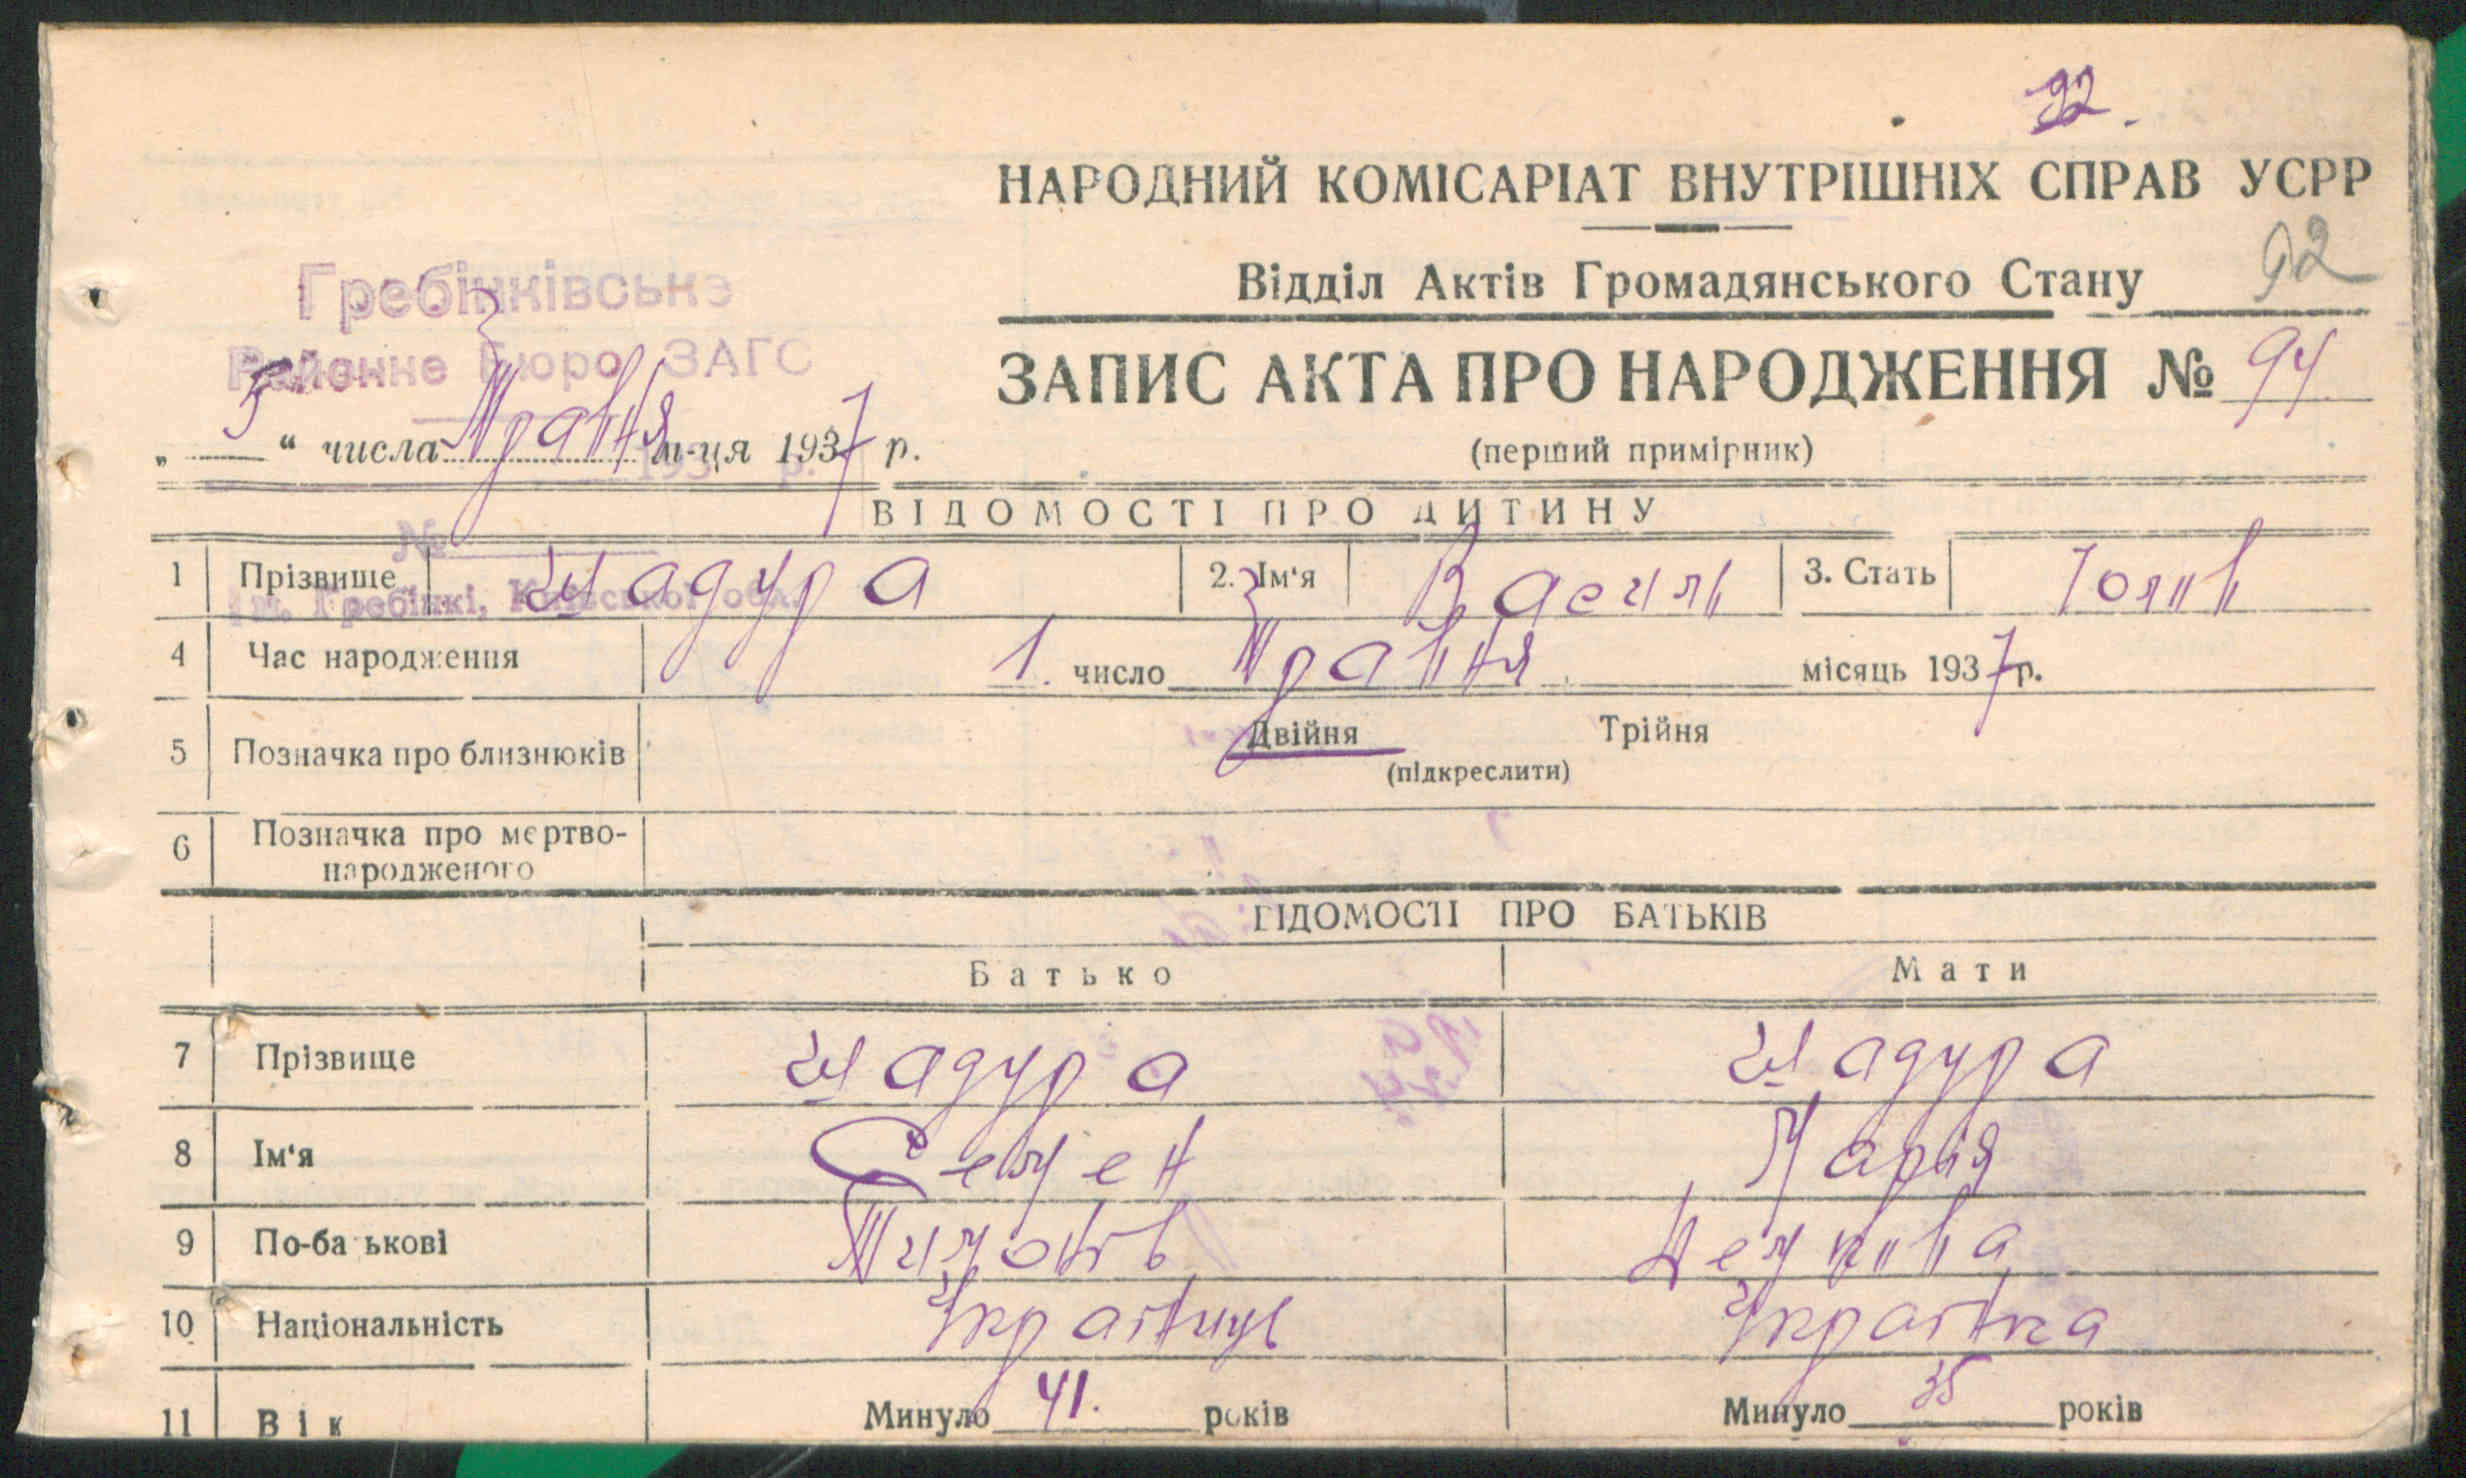 92.
НАРОДНИЙ КОМІСАРІАТ ВНУТРІШНІХ СПРАВ УСРР
92
Відділ Актів Громадянського Стану
Гребінківське
Районне Бюро ЗАГС
ЗАПИС АКТА ПРО НАРОДЖЕННЯ № 94
„ 5 “ числа Травня м-ця 1937 р.
193 р.
(перший примірник)
ВІДОМОСТІ ПРО ДИТИНУ
№
1 Прізвище Шадура 2. Ім'я Василь 3. Стать Чолов
м. Гребінкі, Київської обл.
4 Час народження 1. число Травня місяць 1937 р.
5 Позначка про близнюків Двійня Трійня
(підкреслити)
6 Позначка про мертво-
народженого
ВІДОМОСТІ ПРО БАТЬКІВ
Батько Мати
7 Прізвище Шадура Шадура
8 Ім'я Семен Марія
9 По-ба ькові
10 Національність Українець Українка
11 Вік Минуло 41. років Минуло 35 років